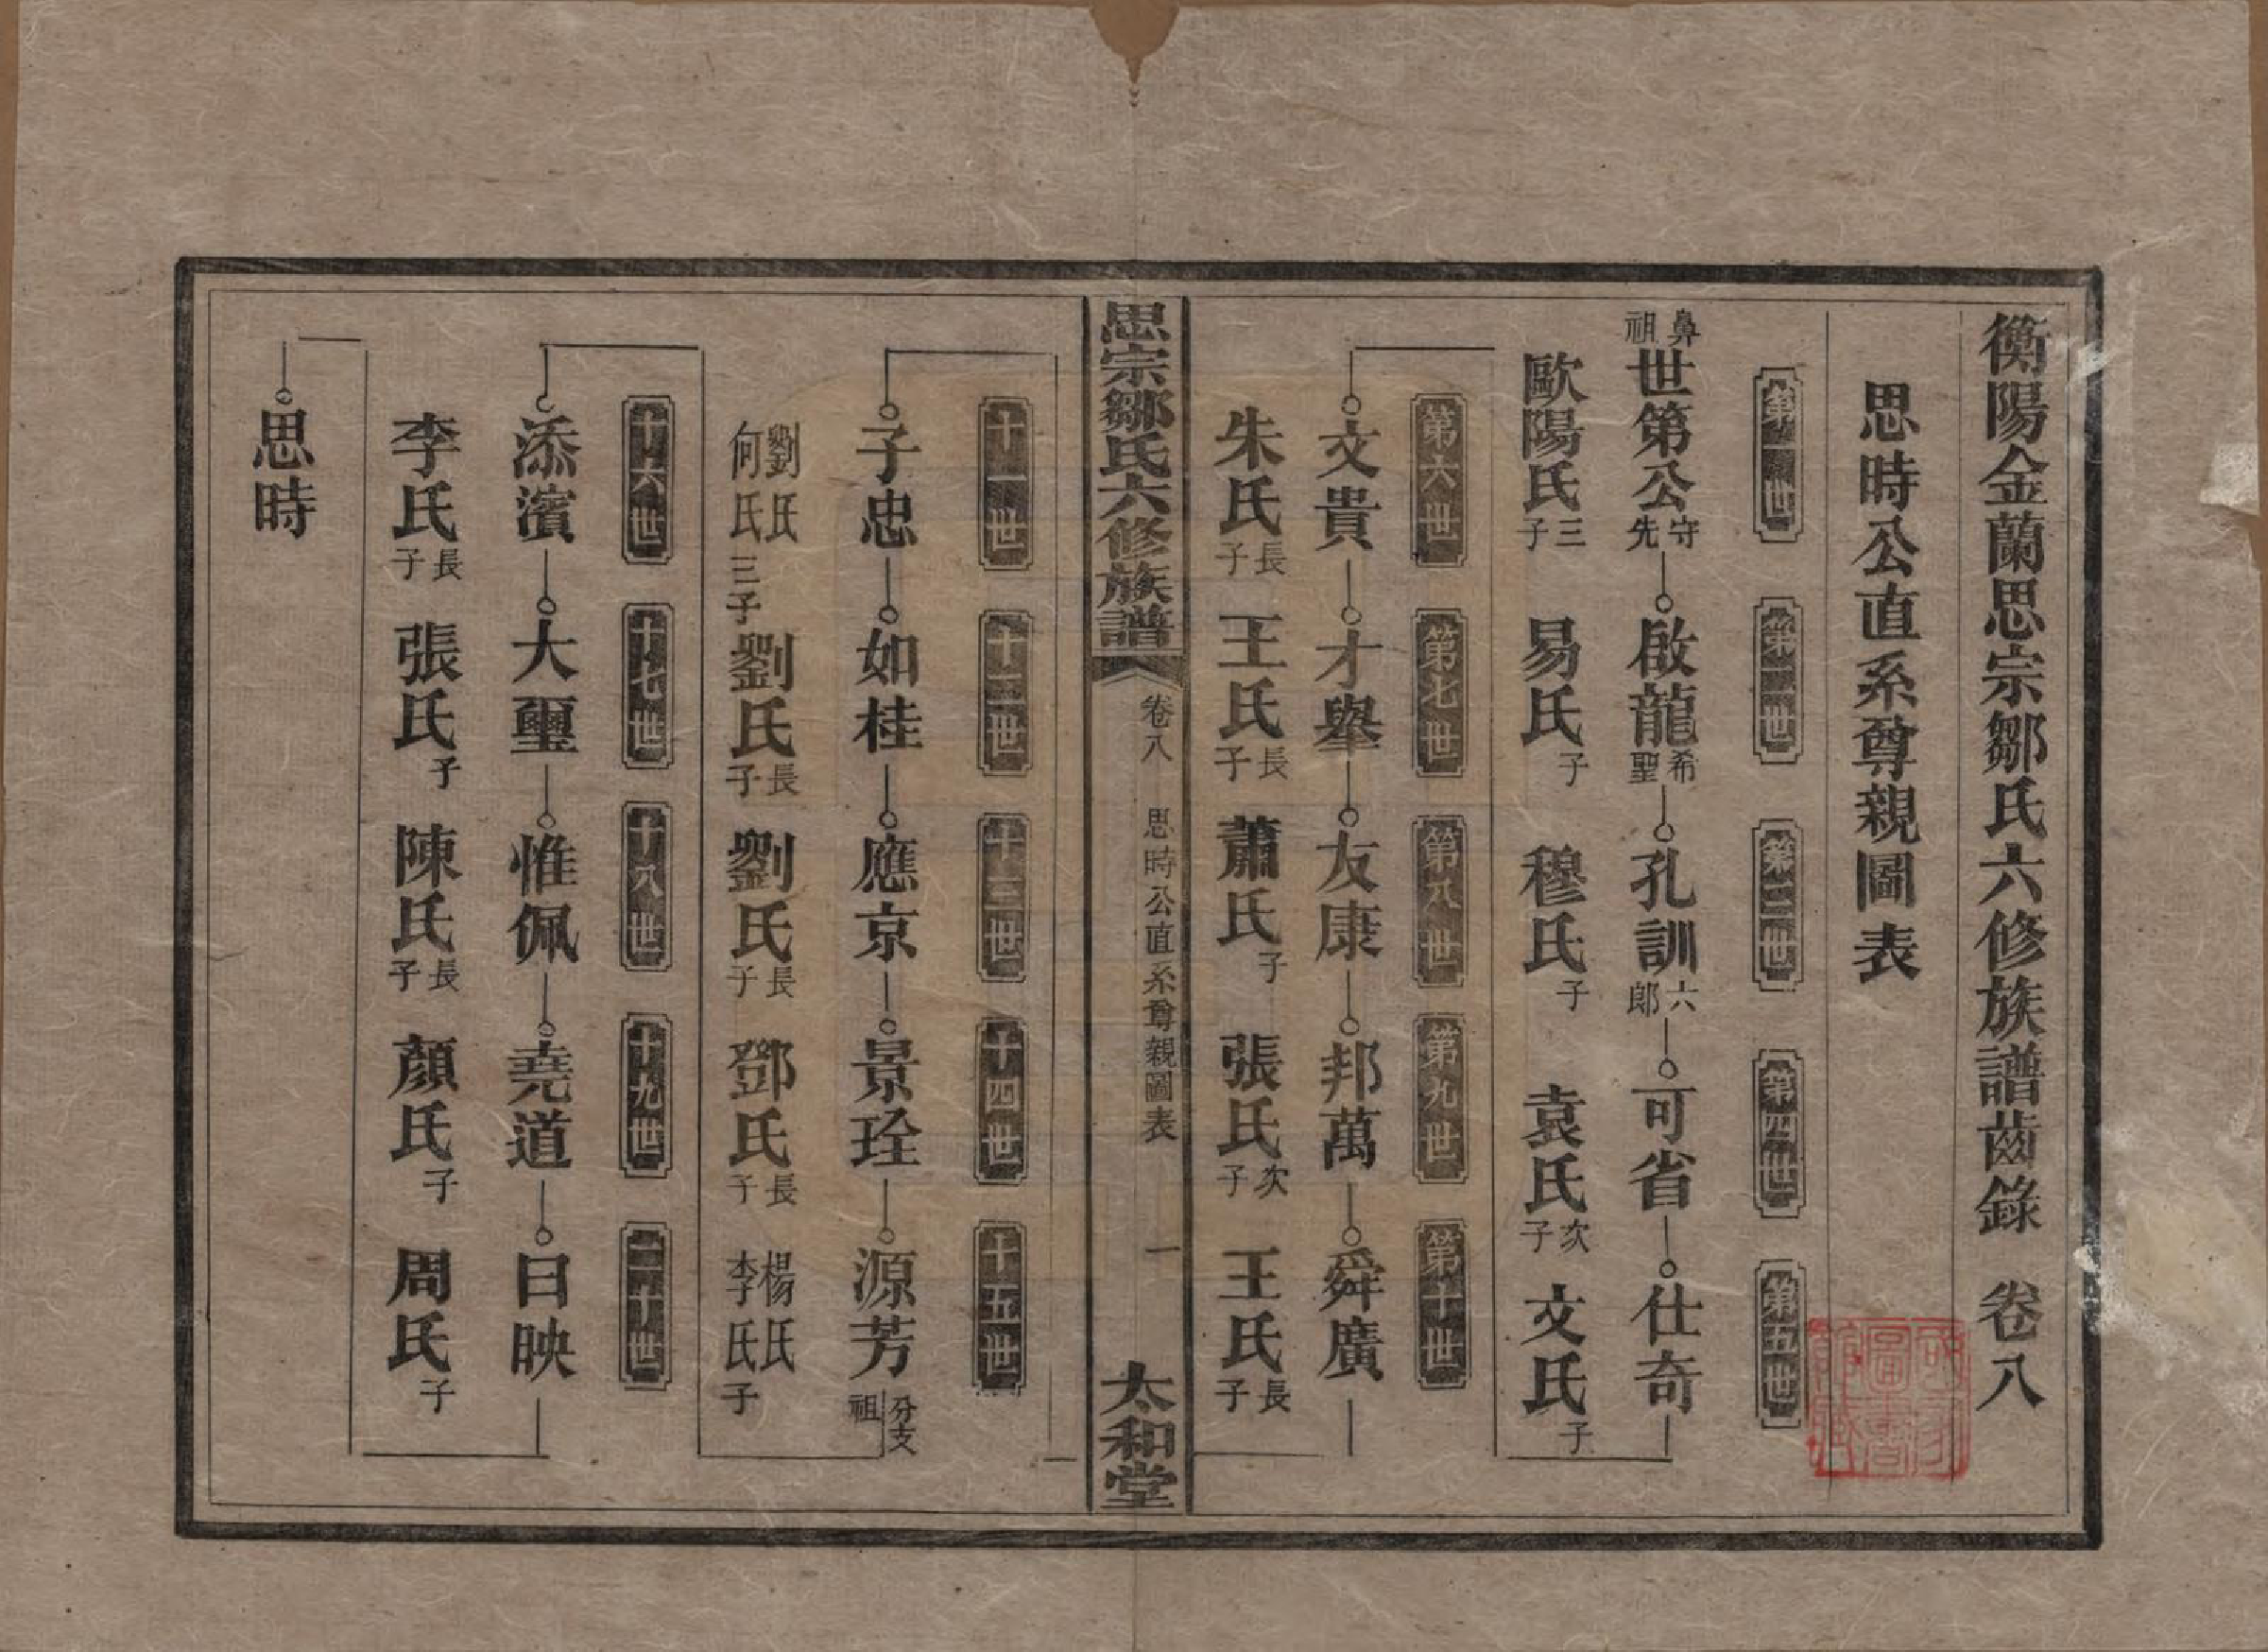 衡陽金蘭思宗鄒氏六修族譜齒錄 卷八
思時公直系尊親圖表
第一世 第二世 第三世 第四世 第五世
鼻祖 世第公 守先 啟龍 希聖 孔訓 六郎 可省 仕奇
歐陽氏 三子 易氏 子 穆氏 子 袁氏 次子 文氏 子
第六世 第七世 第八世 第九世 第十世
文貴 才舉 友康 邦萬 舜廣
朱氏 長子 王氏 長子 蕭氏 子 張氏 次子 王氏 長子
思宗鄒氏六修族譜 卷八 思時公直系尊親圖表 一 太和堂
十一世 十二世 十三世 十四世 十五世
子忠 如桂 應京 景珍 源芳 分支祖
劉氏 何氏 三子 劉氏 長子 劉氏 長子 鄧氏 長子 楊氏 李氏 子
十六世 十七世 十八世 十九世 二十世
添濱 大璽 惟佩 堯道 日映
李氏 長子 張氏 子 陳氏 長子 顏氏 子 周氏 子
思時